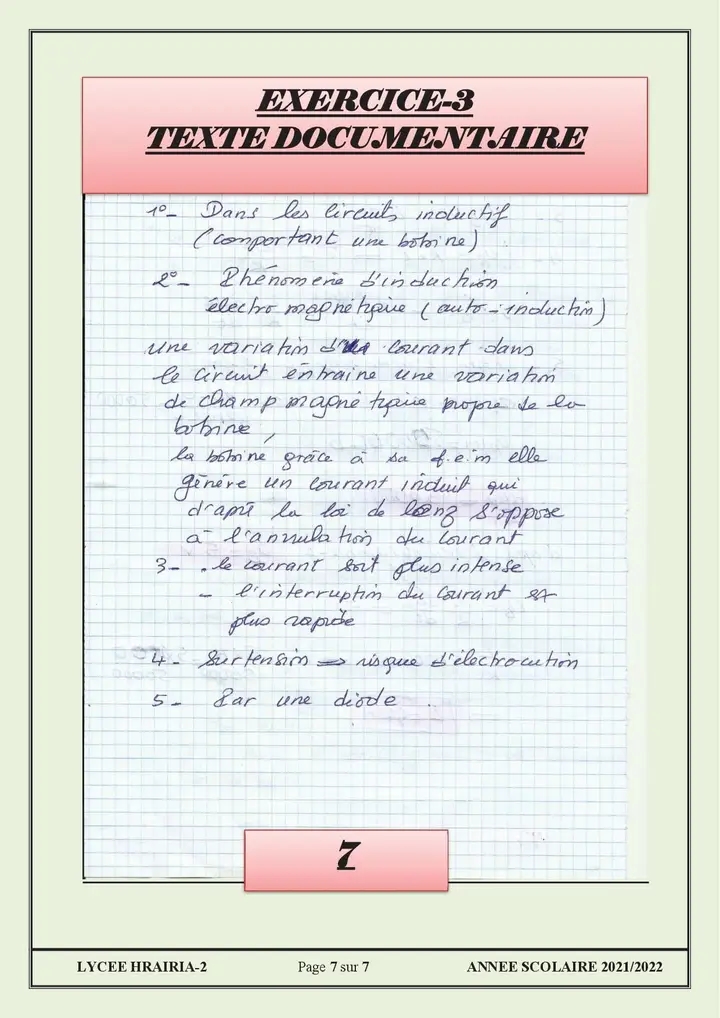 EXERCICE-3
TEXTE DOCUMENTAIRE
1°- Dans les circuits inductif
(comportant une bobine)
2°- Phénomène d'induction
électromagnétique (auto-induction)
une variation du courant dans
le circuit entraine une variation
de champ magnétique propre de la
bobine,
la bobine grâce à sa f.e.m elle
génére un courant induit qui
d'aprè la loi de lenz s'oppose
à l'annulation du courant
3- . le courant soit plus intense
- l'interruption du courant est
plus rapide
4- Surtension ⇒ risque d'électrocution
5- Par une diode.
7
LYCEE HRAIRIA-2 Page 7 sur 7 ANNEE SCOLAIRE 2021/2022